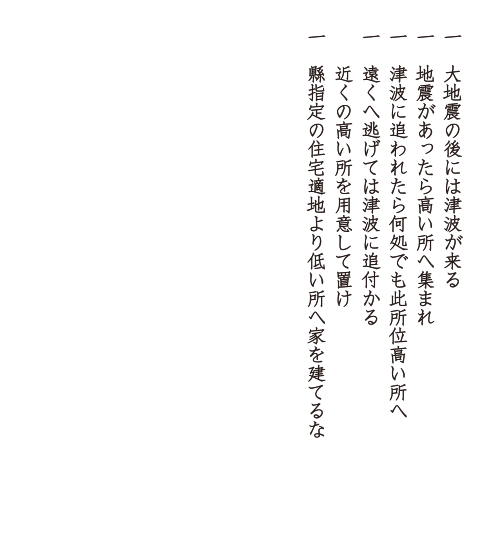 一 大地震の後には津波が来る
一 地震があったら高い所へ集まれ
一 津波に追われたら何処でも此所位高い所へ
一 遠くへ逃げては津波に追付かる
近くの高い所を用意して置け
一 縣指定の住宅適地より低い所へ家を建てるな